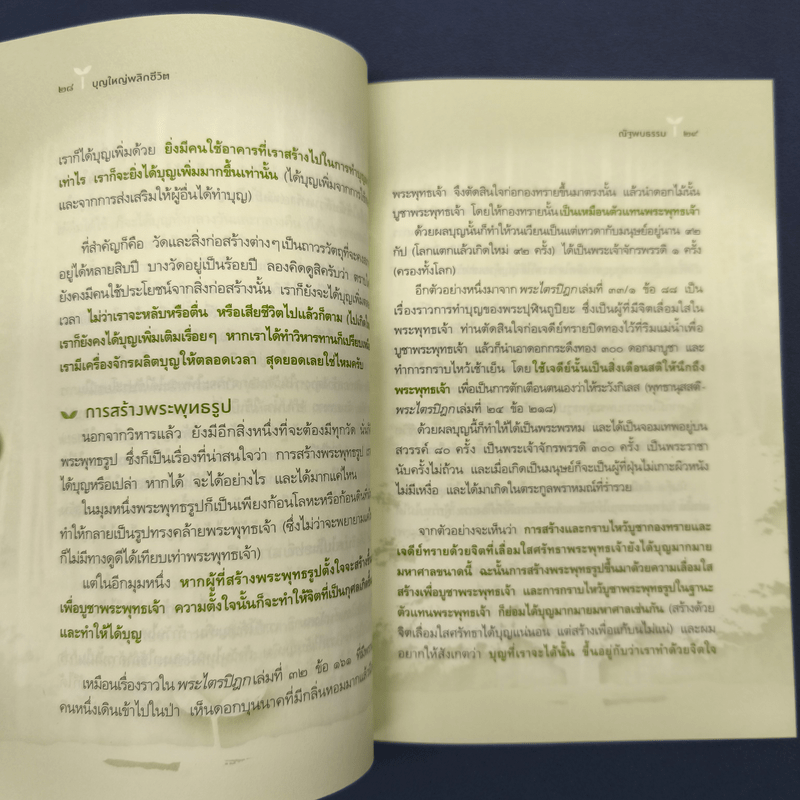 ๒๘ บุญใหญ่พลิกชีวิต
เราก็ได้บุญเพิ่มด้วย ยิ่งมีคนใช้อาคารที่เราสร้างไปในการทำบุญ
เท่าไร เราก็จะยิ่งได้บุญเพิ่มมากขึ้นเท่านั้น (ได้บุญเพิ่มจากการ
และจากการส่งเสริมให้ผู้อื่นได้ทำบุญ)
ที่สำคัญก็คือ วัดและสิ่งก่อสร้างต่างๆ เป็นถาวรวัตถุที่จะ
อยู่ได้หลายสิบปี บางวัดอยู่เป็นร้อยปี ลองคิดดูสิครับว่า
ยังคงมีคนใช้ประโยชน์จากสิ่งก่อสร้างนั้น เราก็ยังจะได้บุญเพิ่ม
เวลา ไม่ว่าเราจะหลับหรือตื่น หรือเสียชีวิตไปแล้วก็ตาม
เราก็ยังคงได้บุญเพิ่มเติมเรื่อยๆ หากเราได้ทำวิหารทาน ก็เปรียบ
เรามีเครื่องจักรผลิตบุญให้ตลอดเวลา สุดยอดเลยใช่ไหมครับ
การสร้างพระพุทธรูป
นอกจากวิหารแล้ว ยังมีอีกสิ่งหนึ่งที่จะต้องมีทุกวัด
พระพุทธรูป ซึ่งก็เป็นเรื่องที่น่าสนใจว่า การสร้างพระพุทธรูป
ได้บุญหรือเปล่า หากได้ จะได้อย่างไร และได้มากแค่ไหน
ในมุมหนึ่งพระพุทธรูปก็เป็นเพียงก้อนโลหะหรือก้อนดิน
ทำให้กลายเป็นรูปทรงคล้ายพระพุทธเจ้า (ซึ่งไม่ว่าจะพยายาม
ก็ไม่มีทางดูดีได้เทียบเท่าพระพุทธเจ้า)
แต่ในอีกมุมหนึ่ง หากผู้ที่สร้างพระพุทธรูปตั้งใจจะสร้าง
เพื่อบูชาพระพุทธเจ้า ความตั้งใจนั้นก็จะทำให้จิตที่เป็นกุศล
และทำให้ได้บุญ
เหมือนเรื่องราวใน พระไตรปิฎก เล่มที่ ๓๒ ข้อ ๑๖๑
คนหนึ่งเดินเข้าไปในป่า เห็นดอกบุนนาคที่มีกลิ่นหอมมาก
ณัฐพบธรรม ๒๙
พระพุทธเจ้า จึงตัดสินใจก่อกองทรายขึ้นมาตรงนั้น แล้วนำดอกไม้นั้น
บูชาพระพุทธเจ้า โดยให้กองทรายนั้นเป็นเหมือนตัวแทนพระพุทธเจ้า
ด้วยผลบุญนั้นก็ทำให้วนเวียนเป็นแต่เทวดากับมนุษย์อยู่นาน ๙๒
กัป (โลกแตกแล้วเกิดใหม่ ๙๒ ครั้ง) ได้เป็นพระเจ้าจักรพรรดิ ๑ ครั้ง
(ครองทั้งโลก)
อีกตัวอย่างหนึ่งมาจาก พระไตรปิฎก เล่มที่ ๓๓/๑ ข้อ ๘๘ เป็น
เรื่องราวการทำบุญของพระปุฬินถูปิยะ ซึ่งเป็นผู้ที่มีจิตเลื่อมใสใน
พระพุทธเจ้า ท่านตัดสินใจก่อเจดีย์ทรายปิดทองไว้ที่ริมแม่น้ำเพื่อ
บูชาพระพุทธเจ้า แล้วก็นำเอาดอกกระดึงทอง ๓๐๐ ดอกมาบูชา และ
ทำการกราบไหว้เช้าเย็น โดย ใช้เจดีย์นั้นเป็นสิ่งเตือนสติให้นึกถึง
พระพุทธเจ้า เพื่อเป็นการตักเตือนตนเองว่าให้ระวังกิเลส (พุทธานุสสติ-
พระไตรปิฎก เล่มที่ ๒๔ ข้อ ๒๑๘)
ด้วยผลบุญนี้ก็ทำให้ได้เป็นพระพรหม และได้เป็นจอมเทพอยู่บน
สวรรค์ ๘๐ ครั้ง เป็นพระเจ้าจักรพรรดิ ๓๐๐ ครั้ง เป็นพระราชา
นับครั้งไม่ถ้วน และเมื่อเกิดเป็นมนุษย์ก็จะเป็นผู้ที่ฝุ่นไม่เกาะผิวหนัง
ไม่มีเหงื่อ และได้มาเกิดในตระกูลพราหมณ์ที่ร่ำรวย
จากตัวอย่างจะเห็นว่า การสร้างและกราบไหว้บูชากองทรายและ
เจดีย์ทรายด้วยจิตที่เลื่อมใสศรัทธาพระพุทธเจ้ายังได้บุญมากมาย
มหาศาลขนาดนี้ ฉะนั้นการสร้างพระพุทธรูปขึ้นมาด้วยความเลื่อมใส
สร้างเพื่อบูชาพระพุทธเจ้า และการกราบไหว้บูชาพระพุทธรูปในฐานะ
ตัวแทนพระพุทธเจ้า ก็ย่อมได้บุญมากมายมหาศาลเช่นกัน (สร้างด้วย
จิตเลื่อมใสศรัทธาได้บุญแน่นอน แต่สร้างเพื่อแก้บนไม่แน่) และผม
อยากให้สังเกตว่า บุญที่เราจะได้นั้น ขึ้นอยู่กับว่าเราทำด้วยจิตใจ